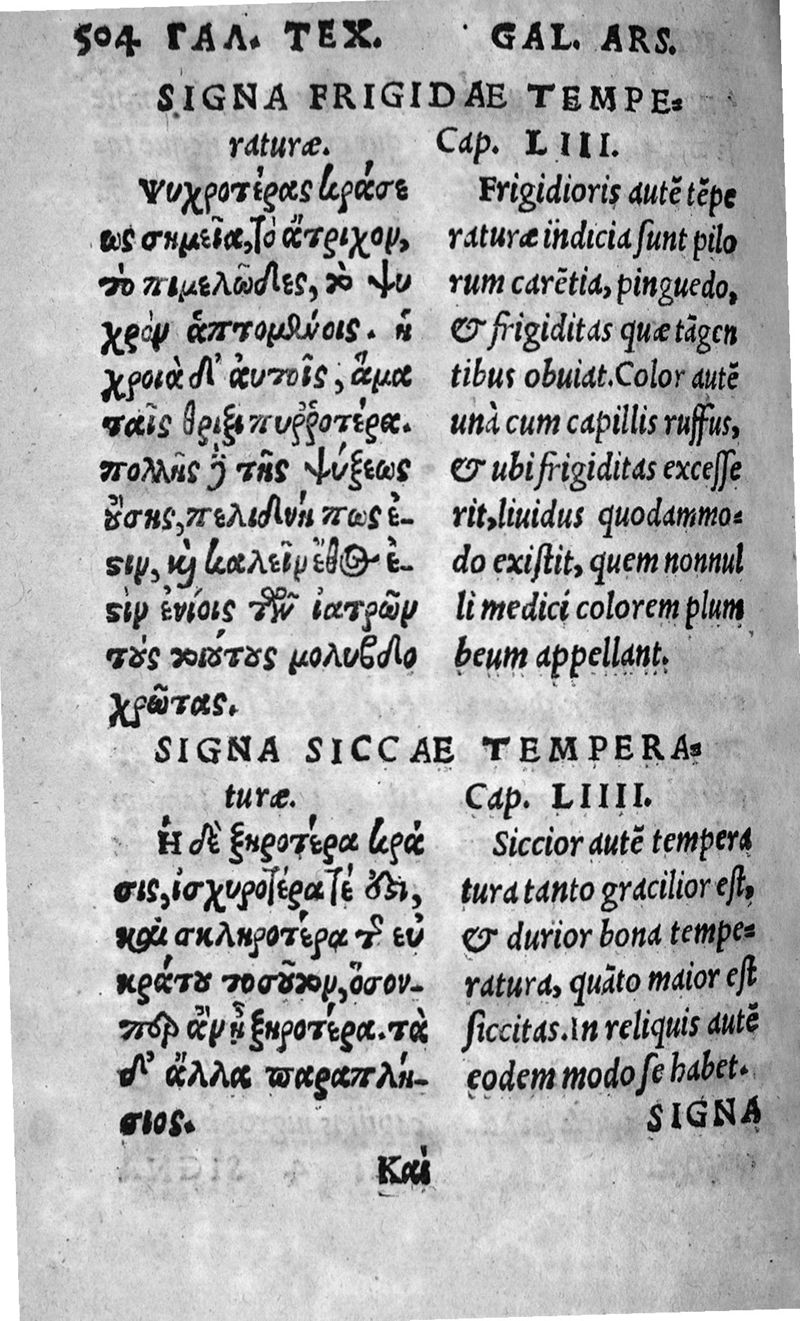 504 ΓΑΛ. ΤΕΧ. GAL. ARS.
SIGNA FRIGIDAE TEMPE-
raturæ. Cap. LIII.
Ψυχροτέρας κράσε
ως σημεῖα, τὸ ἄτριχον,
τὸ πιμελῶδες, τὸ ψυ
χρὸν ἁπτομένοις. ἡ
χροιὰ δ' αὐτοῖς, ἅμα
ταῖς θριξὶ πυῤῥοτέρα.
πολλῆς δὲ τῆς ψύξεως
οὔσης, πελιδνή πως ἐ-
στιν, καὶ καλεῖν ἔθος ἐ-
στὶν ἐνίοις τῶν ἰατρῶν
τοὺς τοιούτους μολυβδο
χρῶτας.
Frigidioris autẽ tẽpe
raturæ indicia ſunt pilo
rum carẽtia, pinguedo,
& frigiditas quæ tãgen
tibus obuiat. Color autẽ
unà cum capillis ruffus,
& ubi frigiditas exceſſe
rit, liuidus quodammo-
do exiſtit, quem nonnul
li medici colorem plum
beum appellant.
SIGNA SICCAE TEMPERA-
turæ. Cap. LIIII.
Ἡ δὲ ξηροτέρα κρᾶ
σις, ἰσχυροτέρα τέ ἐστι,
καὶ σκληροτέρα τῆς εὐ
κράτου τοσοῦτον, ὅσον-
περ ἂν ᾖ ξηροτέρα. τὰ
δ' ἄλλα παραπλή-
σιος.
Siccior autẽ tempera
tura tanto gracilior eſt,
& durior bona tempe-
ratura, quãto maior eſt
ſiccitas. In reliquis autẽ
eodem modo ſe habet.
SIGNA
Καὶ